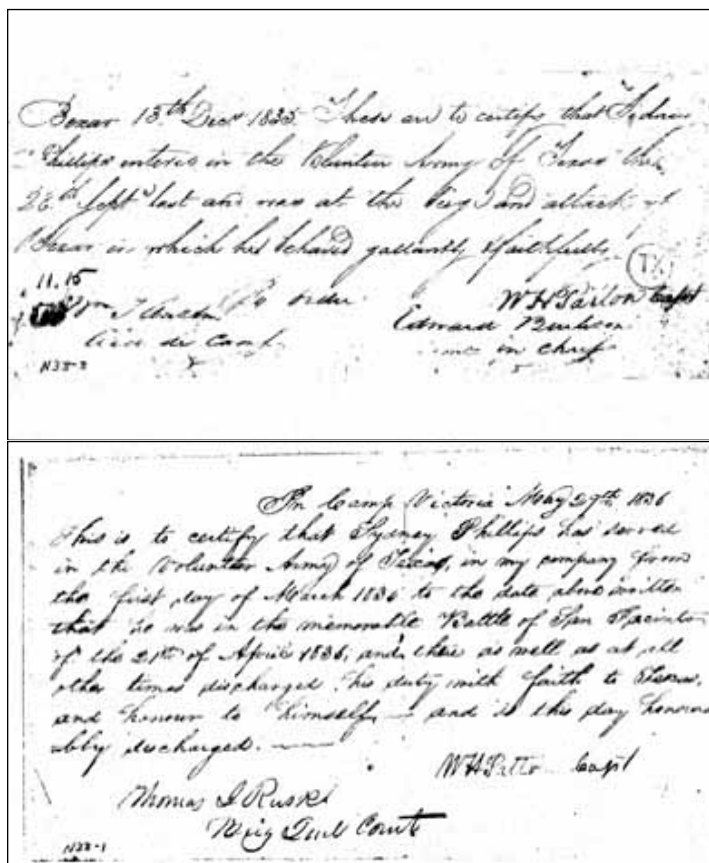 Bexar 15th Decr 1835 These are to certify that Sidney
Phillips enterid in the Volunteer Army of Texas the
28th Septr last and was at the Siege and attack of
Bexar in which he behaved gallantly & faithfully
11.15
TX
Wm T Austin By order W H Patton Capt
Aid de Camp Edward Burleson
in chief
N38-
In Camp Victoria May 29th 1836
This is to certify that Sydney Phillips has served
in the Volunteer Army of Texas, in my company from
the first day of March 1836 to the date above written
that he was in the memorable Battle of San Jacinto
of the 21st of April 1836, and there as well as at all
other times discharged his duty with faith to Texas,
and honour to himself — and is this day honour
ably discharged. —
W H Patton Capt
Thomas J Rusk
Brig Genl Comdg